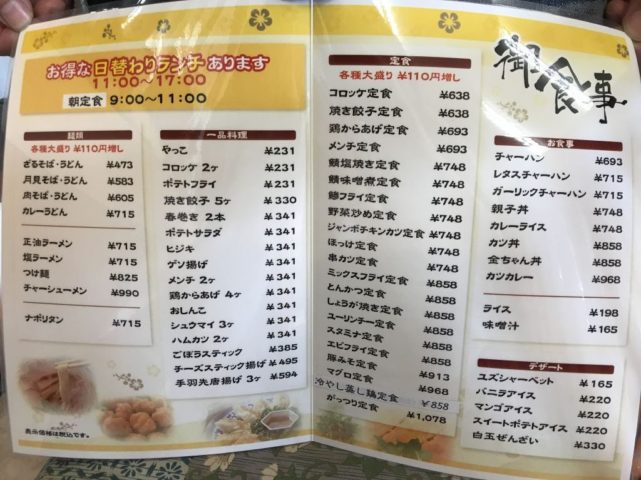 お得な日替わりランチあります
11:00〜17:00
朝定食 9:00〜11:00
麺類
各種大盛り ¥110円増し
ざるそば・うどん ¥473
月見そば・うどん ¥583
肉そば・うどん ¥605
カレーうどん ¥715
正油ラーメン ¥715
塩ラーメン ¥715
つけ麺 ¥825
チャーシューメン ¥990
ナポリタン ¥715
表示価格は税込です。
一品料理
やっこ ¥231
コロッケ 2ヶ ¥231
ポテトフライ ¥231
焼き餃子 5ヶ ¥330
春巻き 2本 ¥341
ポテトサラダ ¥341
ヒジキ ¥341
ゲソ揚げ ¥341
メンチ 2ヶ ¥341
鶏からあげ 4ヶ ¥341
おしんこ ¥341
シュウマイ 3ヶ ¥341
ハムカツ 2ヶ ¥341
ごぼうスティック ¥385
チーズスティック揚げ ¥495
手羽先唐揚げ 3ヶ ¥594
定食
各種大盛り ¥110円増し
コロッケ定食 ¥638
焼き餃子定食 ¥638
鶏からあげ定食 ¥693
メンチ定食 ¥693
鯖塩焼き定食 ¥748
鯖味噌煮定食 ¥748
鯵フライ定食 ¥748
野菜炒め定食 ¥748
ジャンボチキンカツ定食 ¥748
ほっけ定食 ¥748
串カツ定食 ¥748
ミックスフライ定食 ¥858
とんかつ定食 ¥858
しょうが焼き定食 ¥858
ユーリンチー定食 ¥858
スタミナ定食 ¥858
エビフライ定食 ¥858
豚みそ定食 ¥913
マグロ定食 ¥968
冷やし蒸し鶏定食 ¥858
がっつり定食 ¥1,078
御食事
お食事
チャーハン ¥693
レタスチャーハン ¥715
ガーリックチャーハン ¥715
親子丼 ¥748
カレーライス ¥748
カツ丼 ¥858
金ちゃん丼 ¥858
カツカレー ¥968
ライス ¥198
味噌汁 ¥165
デザート
ユズシャーベット ¥165
バニラアイス ¥220
マンゴアイス ¥220
スイートポテトアイス ¥220
白玉ぜんざい ¥330